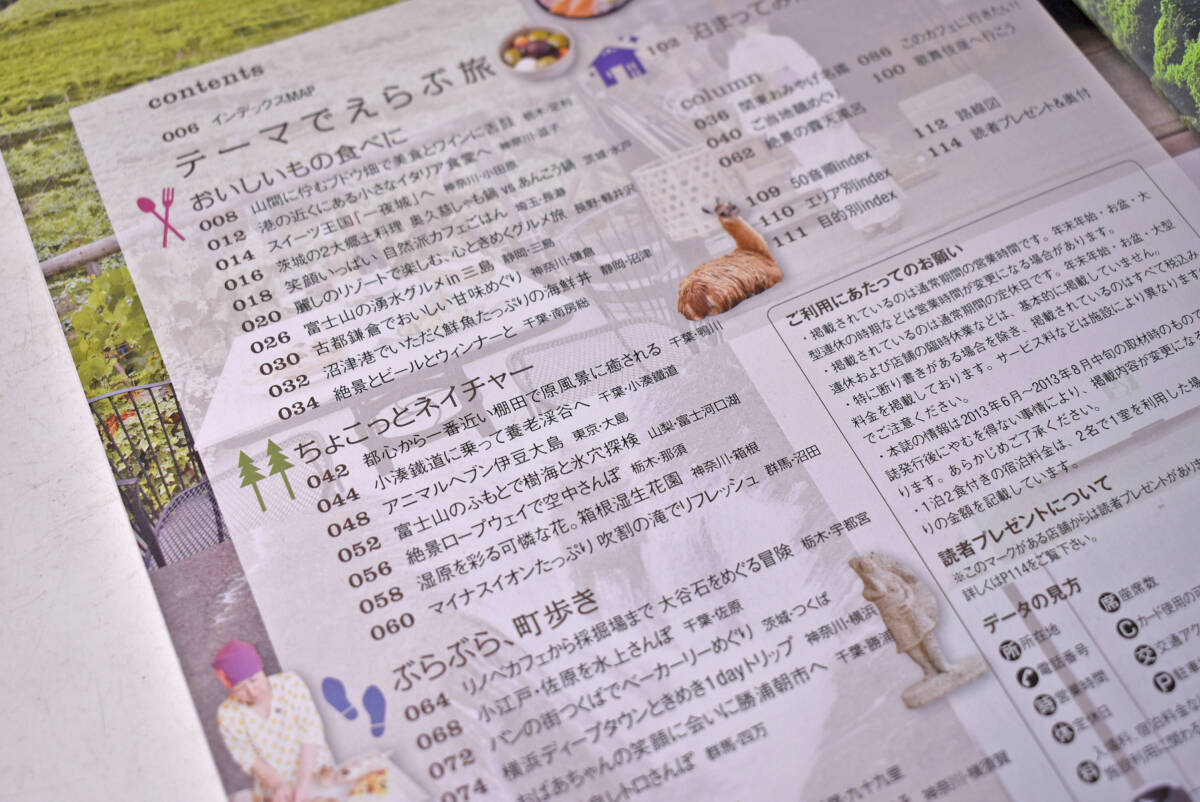 contents
006 インデックスMAP
テーマでえらぶ旅
おいしいもの食べに
008 山間に佇むブドウ畑で美食とワインに舌鼓
012 港の近くにある小さなイタリア食堂へ 神奈川・逗子
014 スイーツ王国「一夜城」へ 神奈川・小田原
016 茨城の2大郷土料理 奥久慈しゃも鍋 vs あんこう鍋 茨城・水戸
018 笑顔いっぱい 自然派カフェごはん 埼玉・長瀞
020 麗しのリゾートで楽しむ、心ときめくグルメ旅 長野・軽井沢
026 富士山の湧水グルメin三島 静岡・三島
030 古都鎌倉でおいしい甘味めぐり 神奈川・鎌倉
032 沼津港でいただく鮮魚たっぷりの海鮮丼 静岡・沼津
034 絶景とビールとウィンナーと 千葉・南房総
ちょこっとネイチャー
042 都心から一番近い棚田で原風景に癒される 千葉・鴨川
044 小湊鐵道に乗って養老渓谷へ 千葉・小湊鐵道
048 アニマルヘブン伊豆大島 東京・大島
052 富士山のふもとで樹海と氷穴探検 山梨・富士河口湖
056 絶景ロープウェイで空中さんぽ 栃木・那須
058 湿原を彩る可憐な花。箱根湿生花園 神奈川・箱根
060 マイナスイオンたっぷり 吹割の滝でリフレッシュ 群馬・沼田
ぶらぶら、町歩き
064 リノベカフェから採掘場まで 大谷石をめぐる冒険 栃木・宇都宮
068 小江戸・佐原を水上さんぽ 千葉・佐原
072 パンの街つくばでベーカリーめぐり 茨城・つくば
074 横浜ディープタウンときめき1dayトリップ 神奈川・横浜
おばあちゃんの笑顔に会いに勝浦朝市へ 千葉・勝浦
レトロさんぽ 群馬・四万
九十九里
神奈川・横須賀
102 泊まっての
column
036 関東おみやげ名鑑
040 ご当地麺めぐり
062 絶景の露天風呂
086 このカフェに行きたい!
100 歌舞伎座へ行こう
109 50音順index
110 エリア別index
111 目的別index
112 路線図
114 読者プレゼント&奥付
ご利用にあたってのお願い
・掲載されているのは通常期間の営業時間です。年末年始・お盆・大
型連休の時期などは営業時間が変更になる場合があります。
・掲載されているのは通常期間の定休日です。年末年始・お盆・大型
連休および店舗の臨時休業などは、基本的に掲載していません。
・特に断り書きがある場合を除き、掲載されているのはすべて税込み
料金を掲載しております。 サービス料などは施設により異なります
でご注意ください。
・本誌の情報は2013年6月〜2013年8月中旬の取材時のもので
誌発行後にやむを得ない事情により、掲載内容が変更になる
ります。あらかじめご了承ください。
・1泊2食付きの宿泊料金は、2名で1室を利用した場
りの金額を記載しています。
読者プレゼントについて
※このマークがある店舗からは読者プレゼントがあり
詳しくはP114をご覧下さい。
データの見方
所 所在地
電話番号
時 営業時間
休 定休日
料 入場料、宿泊料金な
施設利用に関わ
席 座席数
C カード使用の
交 交通ア
P 駐車